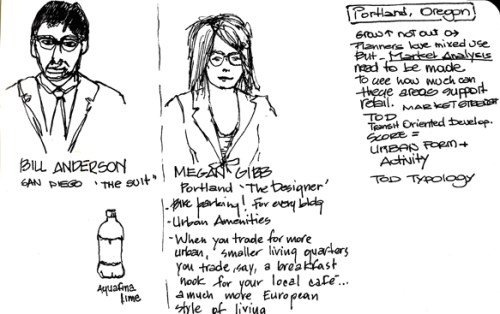 BILL ANDERSON
SAN DIEGO 'THE SUIT'
Aquafina
lime
MEGAN GIBB
Portland 'The Designer'
- Bike parking! For every bldg
- Urban Amenities
- When you trade for more
urban, smaller living quarters
you trade, say, a breakfast
nook for your local café...
a much more European
style of living
Portland, Oregon
Grow ↑ not out →
Planners love mixed use
But - Market Analysis
need to be made
To see how much can
these areas support
retail. MARKET STRENGTH
TOD
Transit Oriented Develop.
SCORE =
URBAN FORM +
Activity
TOD TYPOLOGY